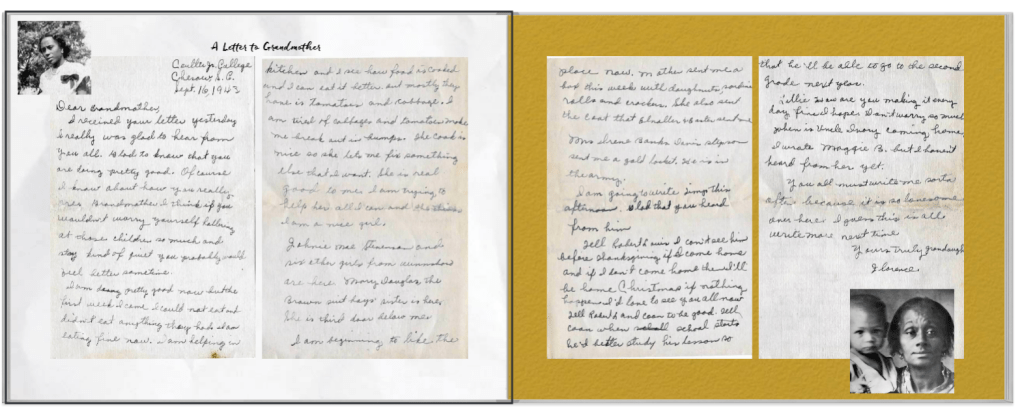 A Letter to Grandmother
Coulter Jr. College
Cheraw S.C.
Sept. 16, 1943
Dear Grandmother,
I received your letter yesterday
I really was glad to hear from
you all. Glad to know that you
are doing pretty good. Of course
I know about how you really
are, Grandmother I think if you
wouldn't worry yourself
at those children so much and
stay kind of quiet you probably could
feel better sometime.
I am doing pretty good now but the
first week I came I could not eat
didn't eat anything they had
eating fine now. I am helping in
kitchen and I see how food is cooked
and I can eat it better but mostly they
have is tomatoes and cabbage. I
am tired of cabbage and tomatoes make
me break out in bumps. The cook is
nice so she lets me fix something
else that I want. She so real
good to me I am trying to
help her all I can and she
I am a nice girl.
Johnie Mae and
six other girls from
are here. Mary Douglas, the
Brown suit boys sister is here
She is third door below me
I am beginning to like the
place now. Mother sent me a
box this week with doughnuts,
rolls and crackers. She also sent
the coat that sent me
Mrs Irene Banks
sent me a gold locket. He is in
the army.
I am going to write this
afternoon. Glad that you heard
from him
Tell Robert Louis I can't see him
before Thanksgiving if I come home
and if I don't come home then I'll
be home Christmas if nothing
happen I'd love to see you all now
Tell Robert and coon to be good. Tell
coon when school starts
he'd better study his lesson so
that he'll be able to go to the second
grade next year.
Lillie How are you making it every
day fine I hope. Don't worry so much
when is Uncle Ivory coming home
I wrote Maggie B. but I haven't
heard from her yet.
You all must write me sorta
often because it is so lonesome
over here. I guess this is all
write more next time
Yours truly
Florence.